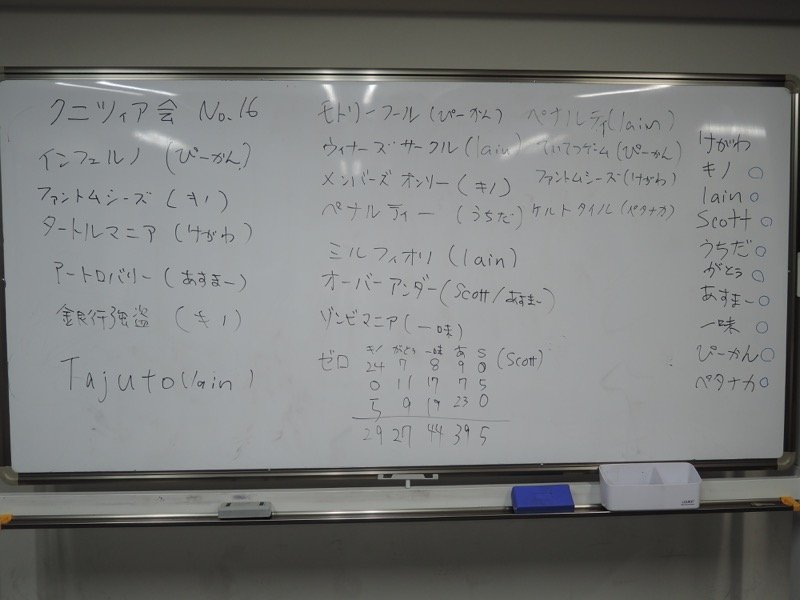 クニツィア会 No.16
インフェルノ (ぴーかん)
ファントムシーズ (キノ)
タートルマニア (けがわ)
アートロバリー (あすまー)
銀行強盗 (キノ)
Tajuto (lain)
モトリーフール (ぴーかん)
ウィナーズサークル (lain)
メンバーズオンリー (キノ)
ペナルティー (うちだ)
ミルフィオリ (lain)
オーバーアンダー (Scott/あすまー)
ゾンビマニア (一味)
ゼロ (Scott)
キノ がとう 一味 あ S
24 7 8 9 0
0 11 17 7 5
5 9 19 23 0
29 27 44 39 5
ペナルティ (lain)
ていてつゲーム (ぴーかん)
ファントムシーズ (けがわ)
ケルトタイル (ペタナカ)
けがわ
キノ ○
lain ○
Scott ○
うちだ ○
がとう ○
あすまー ○
一味 ○
ぴーかん ○
ペタナカ ○